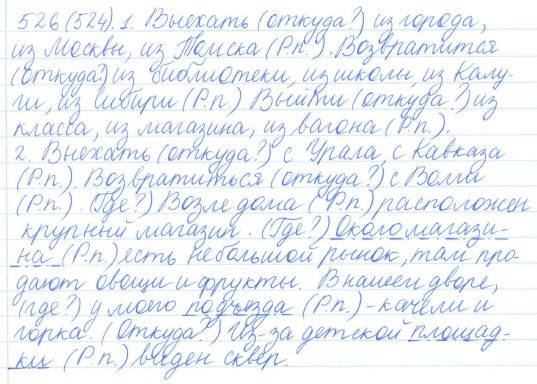 526 (524). 1. Выехать (откуда?) из города,
из Москвы, из Томска (Р.п.). Возвратится
(откуда?) из библиотеки, из школы, из Калу-
ги, из Сибири (Р.п.) Выйти (откуда?) из
класса, из магазина, из вагона (Р.п.).
2. Выехать (откуда?) с Урала, с Кавказа
(Р.п.). Возвратиться (откуда?) с Волги
(Р.п.). (Где?) Возле дома (Р.п.) расположен
крупный магазин. (Где?) Около магази-
на (Р.п.) есть небольшой рынок, там про-
дают овощи и фрукты. В нашем дворе,
(где?) у моего подъезда (Р.п.) - качели и
горка. (Откуда?) Из-за детской площад-
ки (Р.п.) виден сквер.